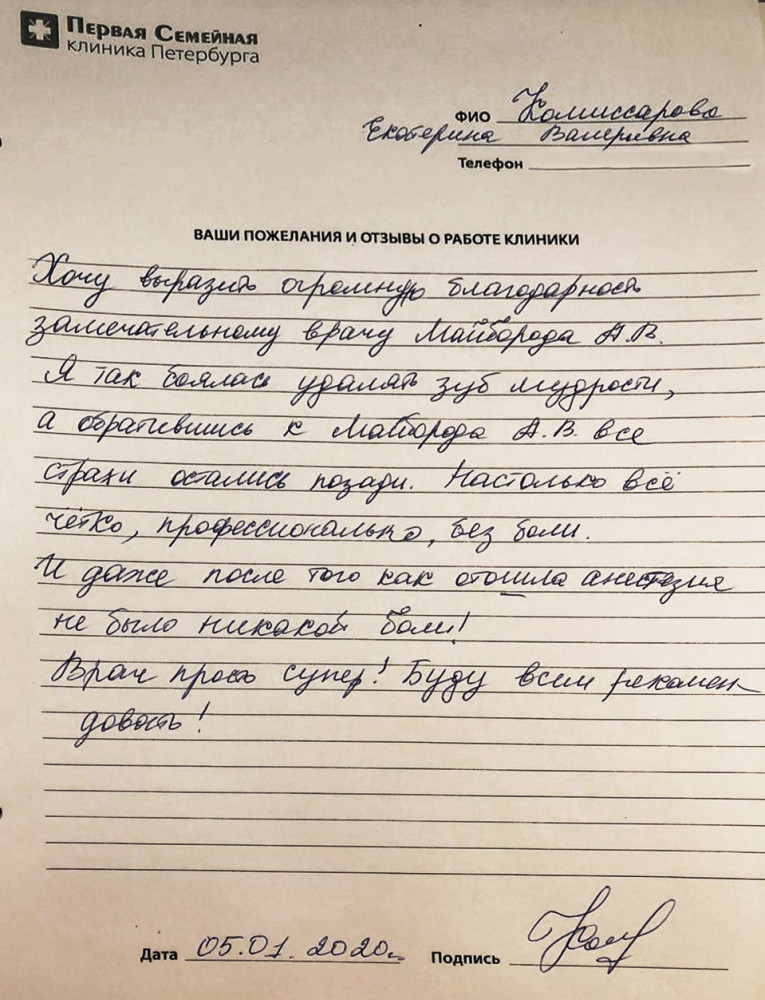 Первая Семейная
клиника Петербурга
ФИО Комиссарова
Екатерина Валериевна
Телефон
ВАШИ ПОЖЕЛАНИЯ И ОТЗЫВЫ О РАБОТЕ КЛИНИКИ
Хочу выразить огромную благодарность
замечательному врачу Майборода А.В.
Я так боялась удалять зуб мудрости,
а обратившись к Майборода А.В. все
страхи остались позади. Настолько всё
чётко, профессионально, без боли.
И даже после того как отошла анестезия
не было никакой боли!
Врач просто супер! Буду всем рекомен-
довать!
Дата 05.01.2020г. Подпись